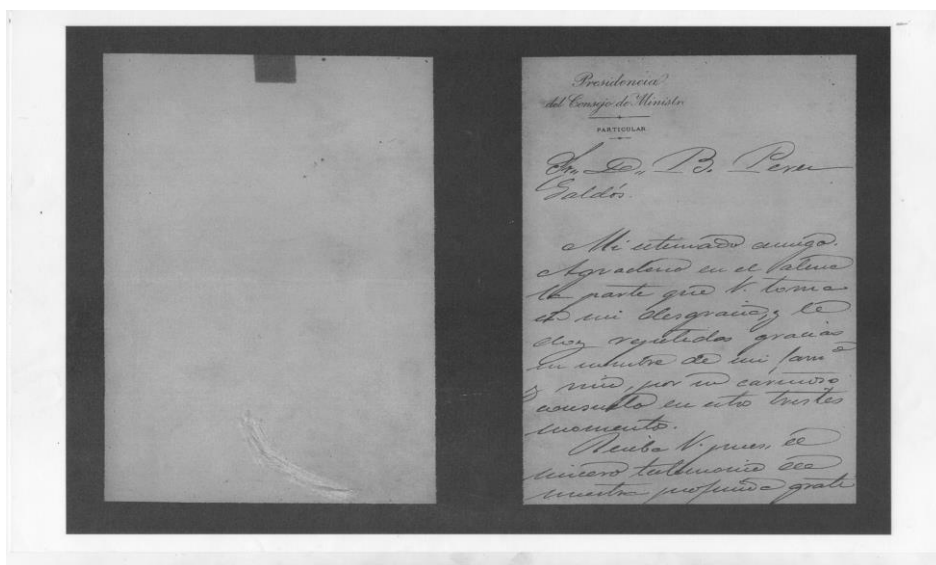 Presidencia
del Consejo de Ministr
PARTICULAR
Sr. D. B. Perez
Galdós.
Mi estimado amigo.
Agradezco en el alma
la parte que V. toma
en mi desgracia, y le
doy repetidas gracias
en nombre de mi fam.ª
y mio, por su cariñoso
consuelo en estos tristes
momentos.
Reciba V. pues, el
sincero testimonio de
nuestra profunda grati